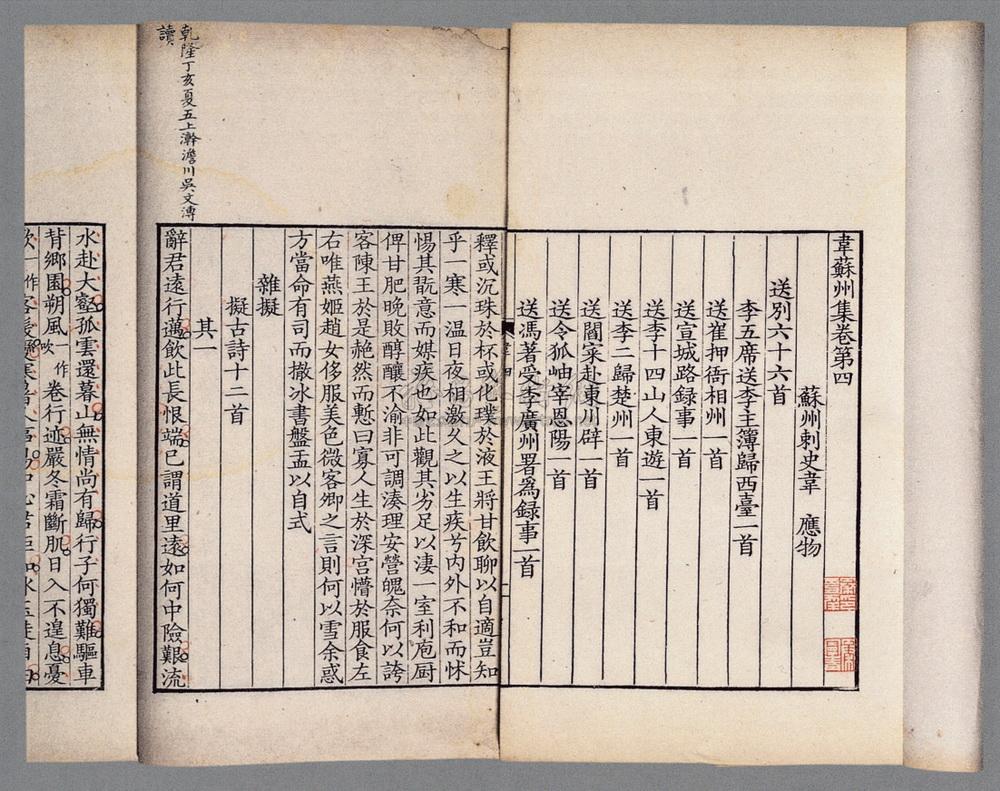 韋蘇州集卷第四
蘇州刺史韋 應物
送別六十六首
李五席送李主簿歸西臺一首
送崔押衙相州一首
送宣城路録事一首
送李十四山人東遊一首
送李二歸楚州一首
送閻寀赴東川辟一首
送令狐岫宰恩陽一首
送馮著受李廣州署爲録事一首
釋或沉珠於杯或化璞於液王將甘飲聊以自適豈知
乎一寒一温日夜相激久之以生疾兮内外不和而怵
惕其翫意而媒疾也如此觀其劣足以淒一室利庖厨
俾甘肥晚敗醇釀不渝非可調湊理安營魄奈何以誇
客陳王於是赩然而慙曰寡人生於深宫懵於服食左
右唯燕姬趙女侈服美色微客卿之言則何以雪余惑
方當命有司而撤冰書盤盂以自式
雜擬
擬古詩十二首
其一
辭君遠行邁飲此長恨端已謂道里遠如何中險艱流
乾隆丁亥夏五上澣澹川吳文溥
讀
水赴大壑孤雲還暮山無情尚有歸行子何獨難驅車
背鄉園朔風一作吹卷行迹嚴冬霜斷肌日入不遑息憂